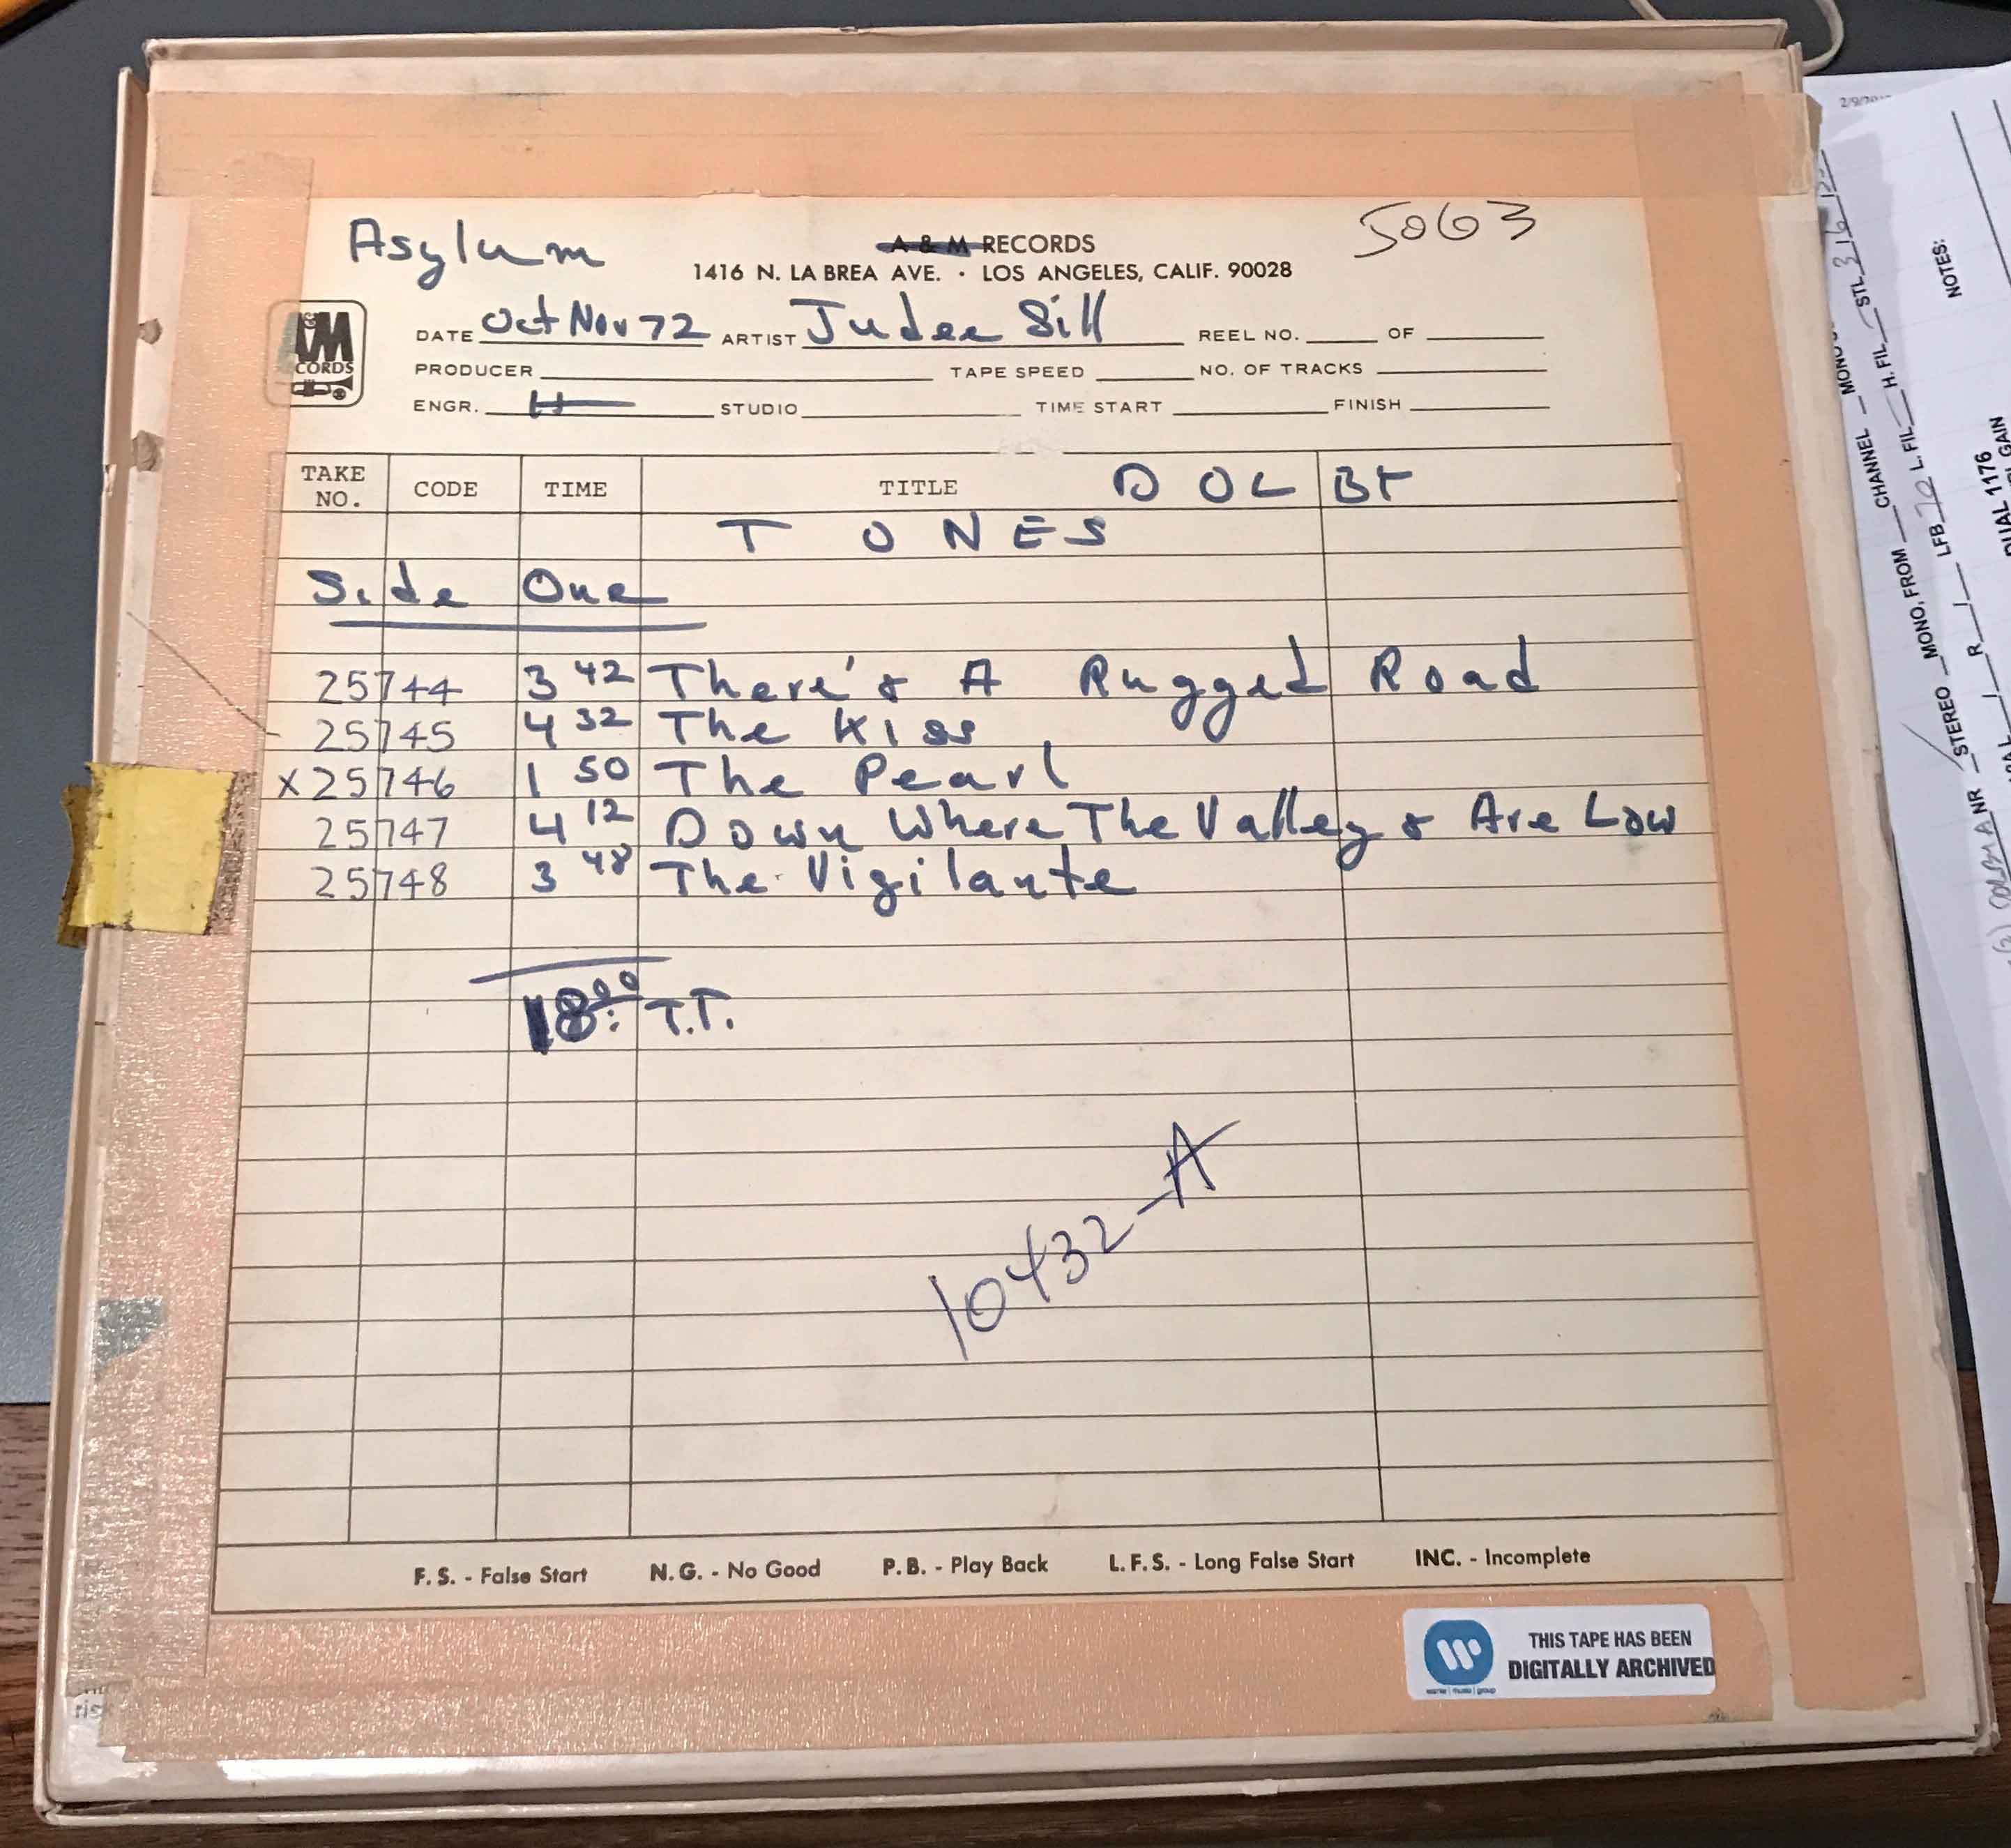 Asylum
A & M RECORDS
5063
1416 N. LA BREA AVE. · LOS ANGELES, CALIF. 90028
DATE Oct Nov 72 ARTIST Judee Sill REEL NO. OF
PRODUCER TAPE SPEED NO. OF TRACKS
ENGR. H STUDIO TIME START FINISH
TAKE NO. CODE TIME TITLE DOLBY
TONES
Side One
25744 3 42 There's A Rugged Road
25745 4 32 The Kiss
X 25746 1 50 The Pearl
25747 4 12 Down Where The Valleys Are Low
25748 3 48 The Vigilante
18:00 T.T.
10432-A
F.S. - False Start N.G. - No Good P.B. - Play Back L.F.S. - Long False Start INC. - Incomplete
THIS TAPE HAS BEEN
DIGITALLY ARCHIVED
warner music group
NOTES:
CHANNEL
STL 3/6/12
H. FIL
L. FIL
MONO, FROM
LFB
STEREO
NR
DUAL 1176
GAIN